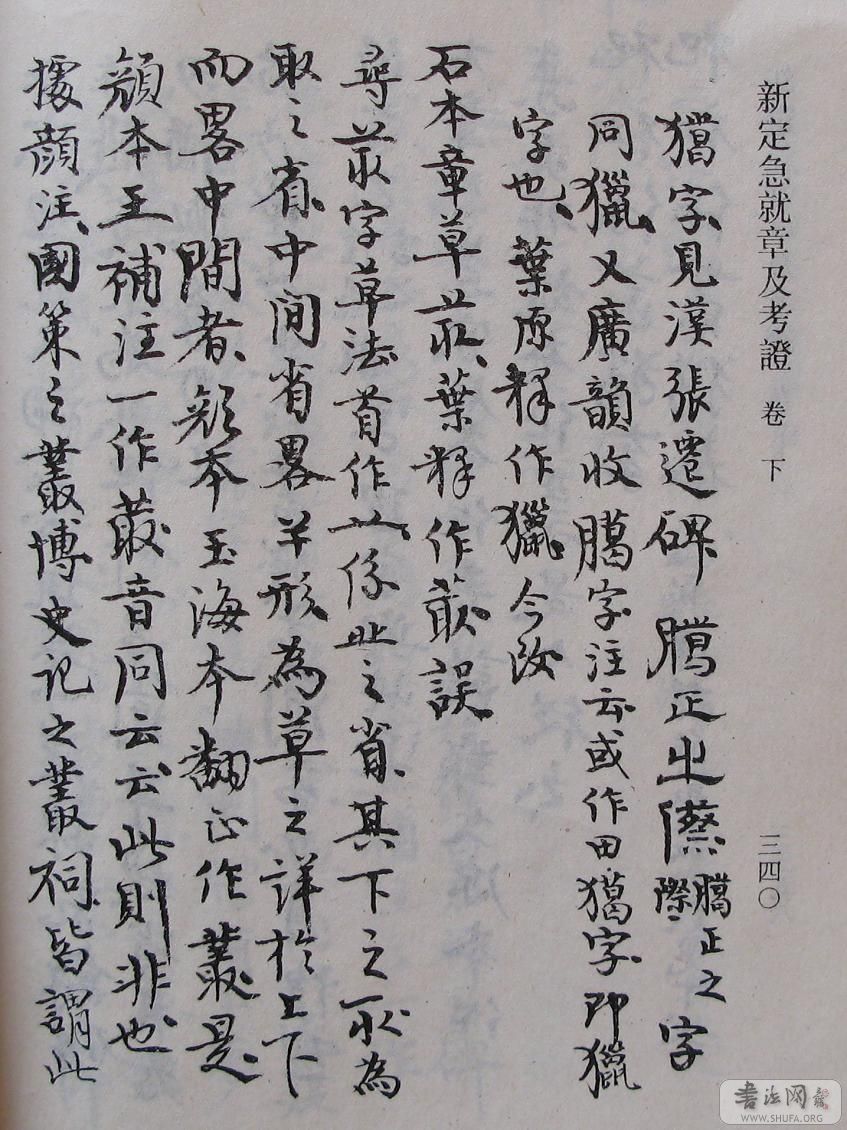 新定急就章及考證 卷下 三四〇
獦字見漢張遷碑 臈正之𠎝 臈正之際字
同獵又廣韻收臈字注云或作田獦字即獵
字也葉原釋作獵今改
石本章草䕺葉釋作蕺誤
尋䕺字草法首作䒑係丵之省其下之取為
取之省中間省畧羊形為草之詳於上下
而畧中間者顏本玉海本翻正作叢是
顏本王補注一作菆音同云云此則非也
據顏注國策之叢博史記之叢祠皆謂此
書法网
WWW.SHUFA.ORG